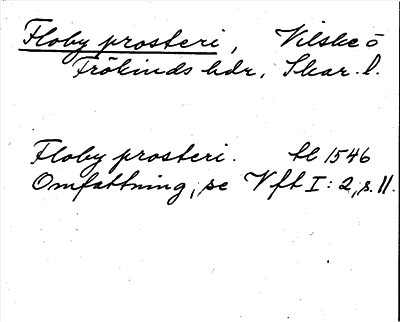 Floby prosteri, Vilske o
Frökinds hdr, Skar. l.
Floby prosteri. tl 1546
Omfattning, se Vft I: 2, s. 11.